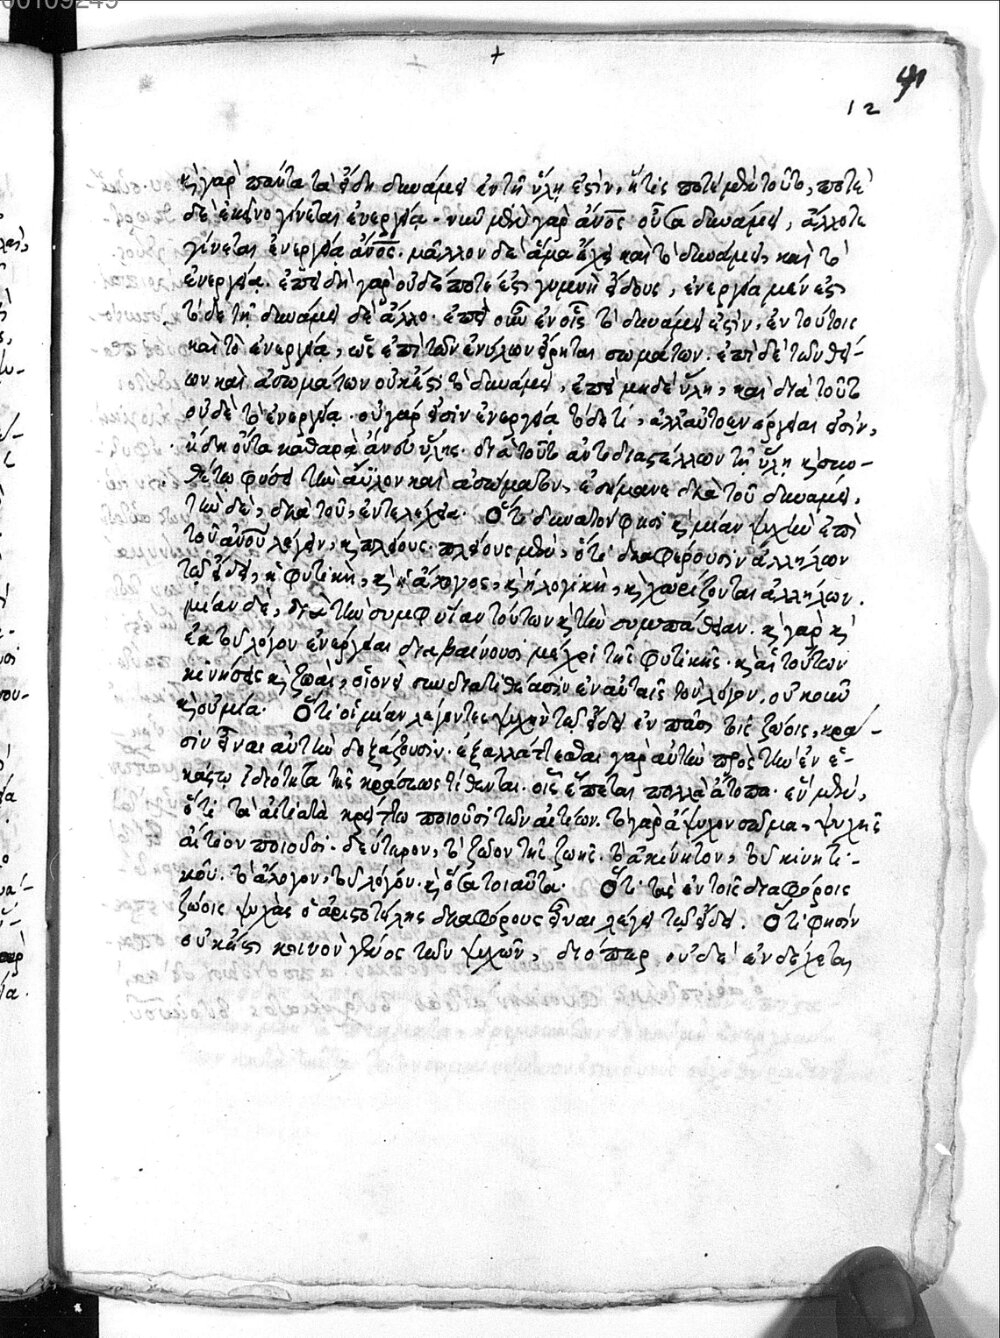 00109249
+
12
κỳ γὰρ πάντα τὰ εἴδη δυνάμει ἐν τῇ ὕλῃ ἐστὶν, ποτὲ μὲν τοῦτο, ποτὲ
δὲ ἐκεῖνο γίνεται ἐνεργείᾳ. νῦν μὲν γὰρ ἄνος οὖσα δυνάμει, ἄλλοτε
γίνεται ἐνεργείᾳ ἄνος. μᾶλλον δὲ ἅμα ἔχει καὶ τὸ δυνάμει, καὶ τὸ
ἐνεργείᾳ. ἐπειδὴ γὰρ οὐδέποτέ ἐστι γυμνὴ εἴδους, ἐνεργείᾳ μέν ἐστι
τόδε τι, δυνάμει δὲ ἄλλο. ἐπεὶ οὖν ἐν οἷς τὸ δυνάμει ἐστὶν, ἐν τούτοις
καὶ τὸ ἐνεργείᾳ, ὡς ἐπὶ τῶν ἐνύλων εἴρηται σωμάτων. ἐπὶ δὲ τῶν θεί-
ων καὶ ἀσωμάτων οὐκ ἔστι τὸ δυνάμει, ἐπεὶ μηδὲ ὕλη, καὶ διὰ τοῦτο
οὐδὲ τὸ ἐνεργείᾳ. οὐ γάρ εἰσιν ἐνεργείᾳ τόδε τι, ἀλλ' αὐτοενέργειαι εἰσὶν,
εἴδη ὄντα καθαρὰ ἄνευ ὕλης. διὰ τοῦτο ἀντιδιαστέλλων τῇ ὕλῃ καὶ συν-
θέτῳ φύσει τὴν ἄϋλον καὶ ἀσώματον, ἐσήμανε διὰ τοῦ δυνάμει,
τὴν δὲ, διὰ τοῦ, ἐντελέχεια. Ὅτι δυνατόν φησι καὶ μίαν ψυχὴν ἐπὶ
τοῦ ἀνου λέγειν, καὶ πλείους. πλείους μὲν, ὅτι διαφέρουσιν ἀλλήλων
τῷ εἴδει, ἡ φυτικὴ, καὶ ἡ ἄλογος, καὶ ἡ λογικὴ, καὶ χωρίζονται ἀλλήλων.
μίαν δὲ, διὰ τὴν συμφυΐαν τούτων καὶ τὴν συμπάθειαν. καὶ γὰρ καὶ
ἐκ τοῦ λόγου ἐνέργειαι διαβαίνουσι μέχρι τῆς φυτικῆς. καὶ αἱ τούτων
κινήσεις καὶ ζωαὶ, οἱονεὶ συνδιατιθέασιν ἐν αὐταῖς τὸν λόγον. οὐκοῦν
καὶ οὐ μία. Ὅτι οἱ μίαν λέγοντες ψυχὴν τῷ εἴδει ἐν πᾶσι τοῖς ζῴοις, κρᾶ-
σιν εἶναι αὐτὴν δοξάζουσιν. ἐξαλλάττεσθαι γὰρ αὐτὴν πρὸς τὴν ἐν ἑ-
κάστῳ ἰδιότητα τῆς κράσεως τίθενται. οἷς ἕπεται πολλὰ ἄτοπα. ἓν μὲν,
ὅτι τὰ αἰτιατὰ κρείττω ποιοῦσι τῶν αἰτίων. τὸ γὰρ ἄψυχον σῶμα, ψυχῆς
αἴτιον ποιοῦσι. δεύτερον, τὸ ζῶον τῆς ζωῆς. τὸ ἀκίνητον, τοῦ κινητι-
κοῦ. τὸ ἄλογον, τοῦ λόγου. καὶ ὅσα τοιαῦτα. Ὅτι τὰς ἐν τοῖς διαφόροις
ζώοις ψυχὰς ὁ ἀριστοτέλης διαφόρους εἶναι λέγει τῷ εἴδει. Ὅτι φησὶν
οὐκ ἔστι κοινὸν γένος τῶν ψυχῶν, διόπερ οὐδὲ ἐνδέχεται